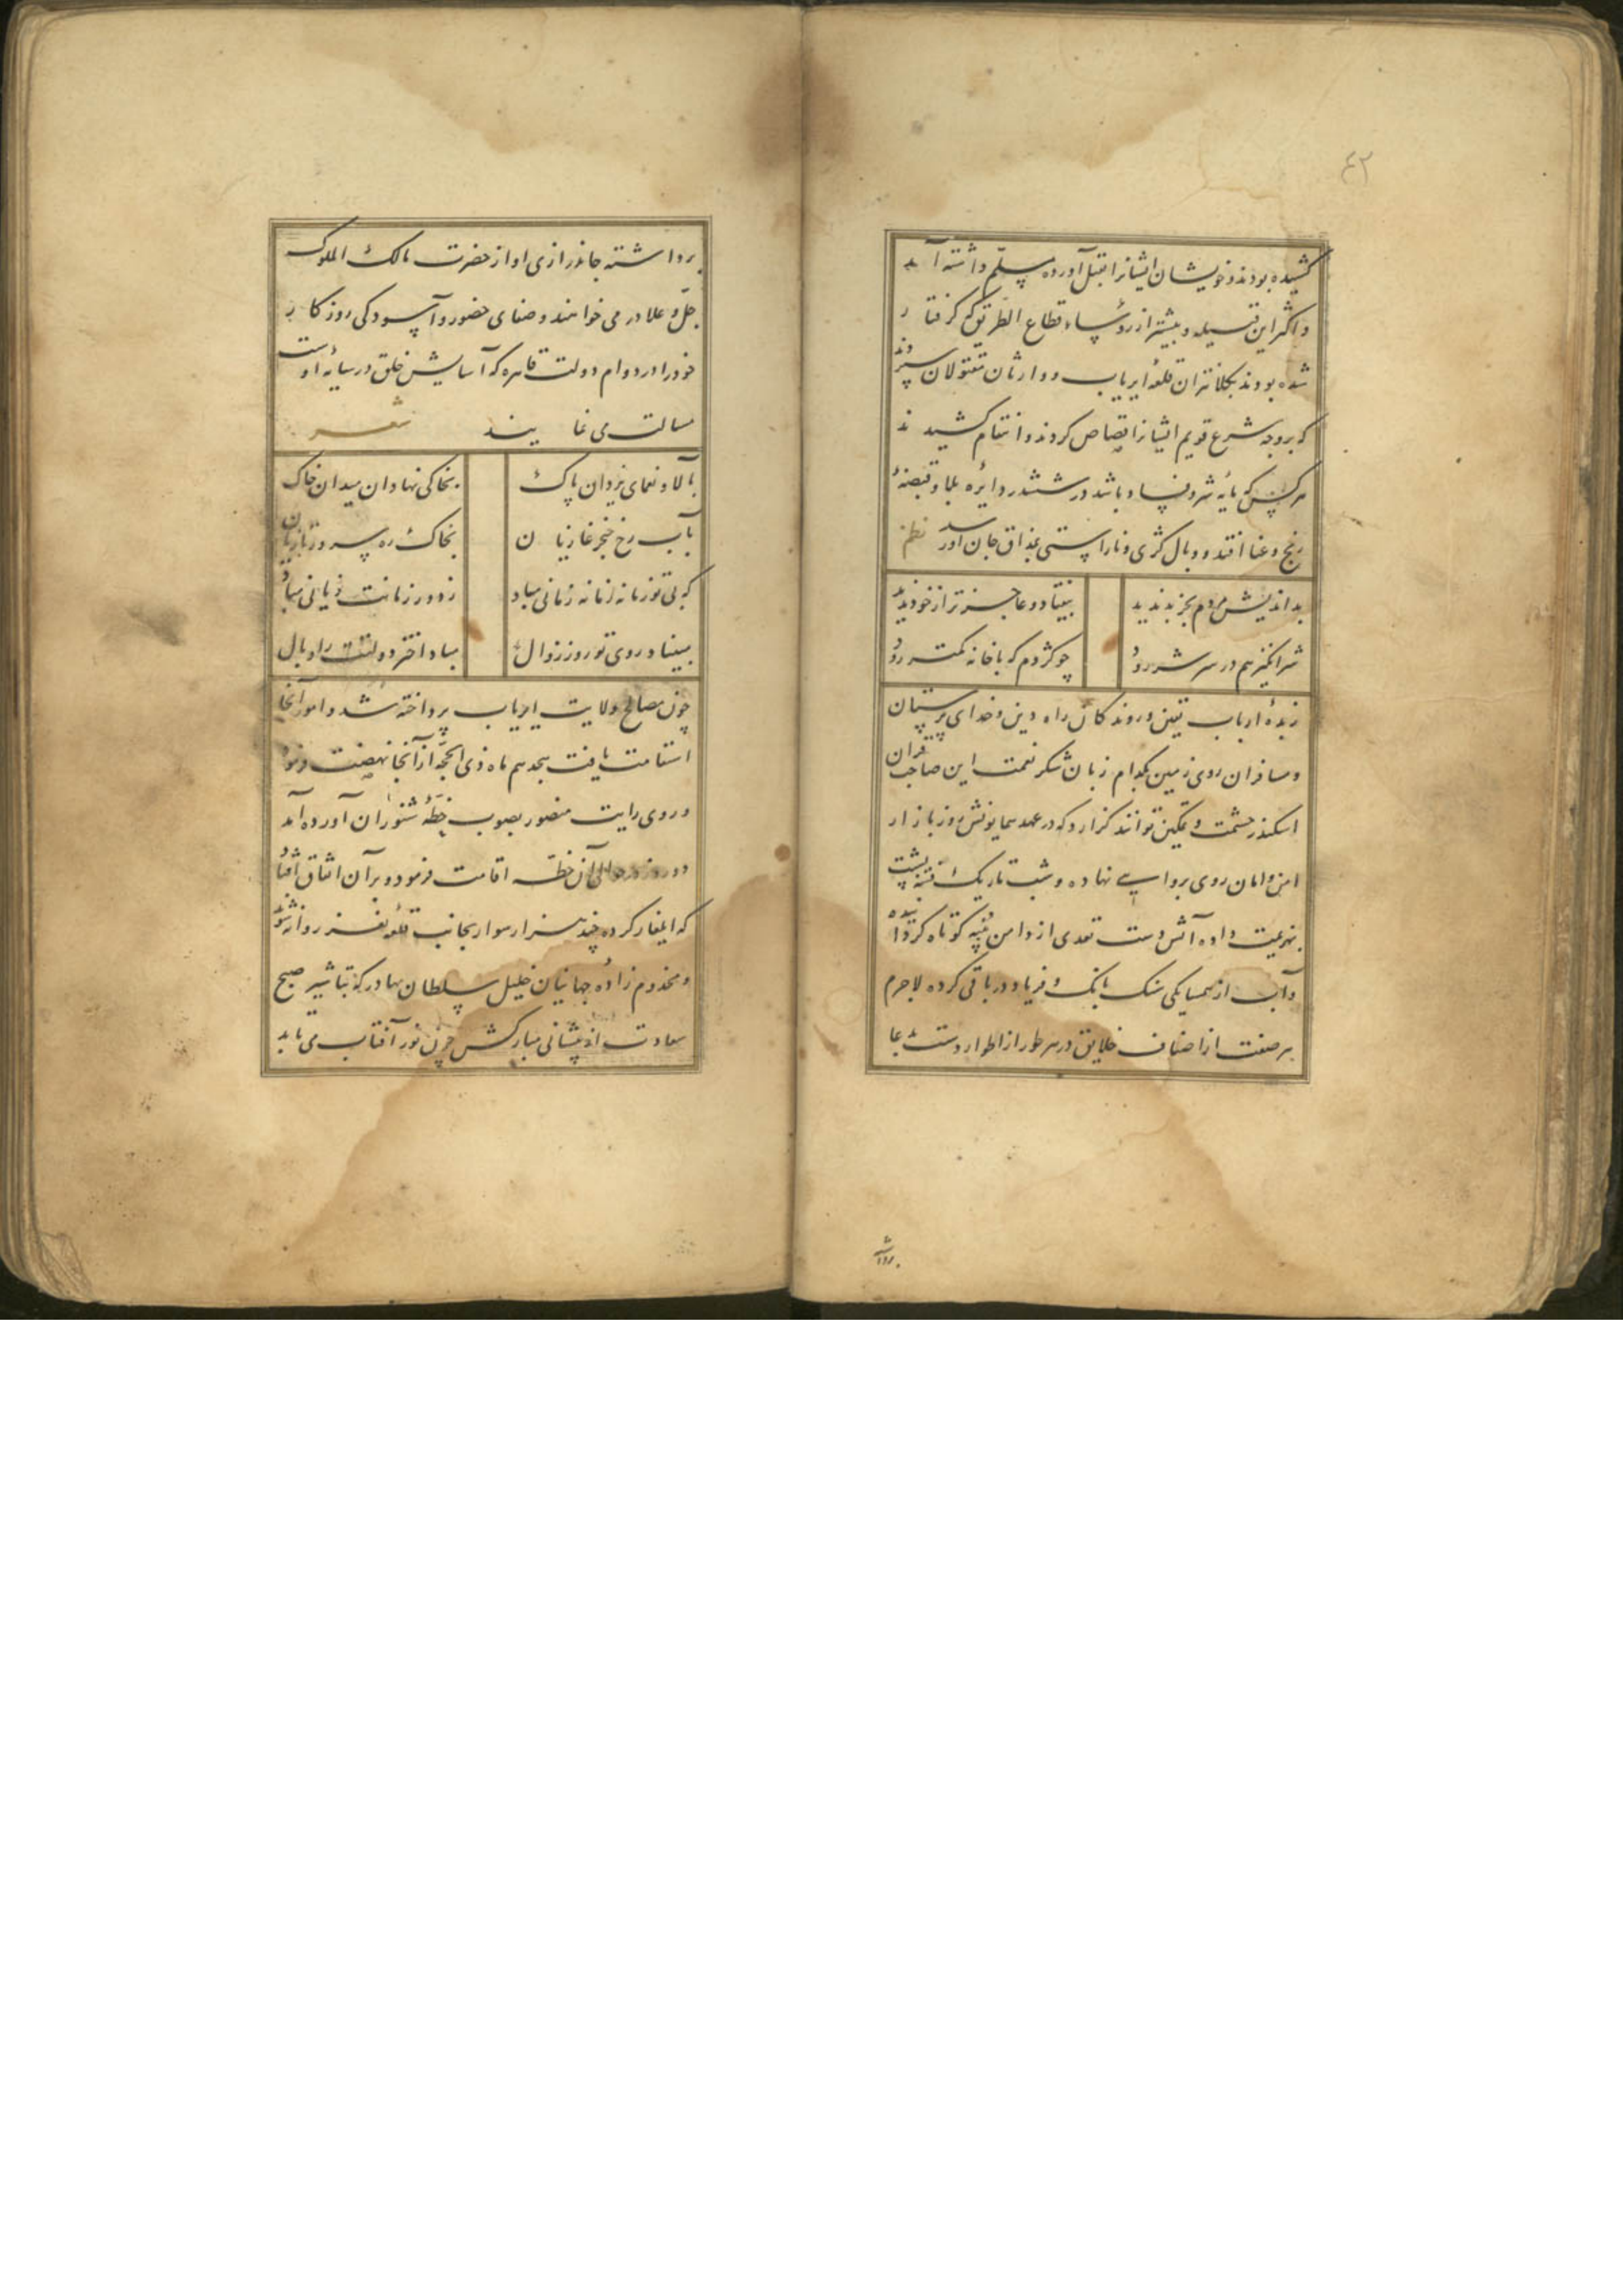 ۴۲
کشیده بودند و خویشان ایشانرا بقتل آورده مسلّم داشته آید
و اکثر این قبیله و بیشتر از رؤساء قطاع الطریق که گرفتار
شده بودند بکلانتران قلعهٔ ایریاب و وارثان مقتولان سپردند
که بر وجه شرع قویم ایشانرا قصاص کردند و انتقام کشیدند
هرکس که مایهٔ شر و فساد باشد در ششدر دایرهٔ بلا و قبضهٔ
رنج و عنا افتد و وبال کژی و ناراستی بمذاق جان او رسد نظم
بد اندیش مردم بجز بد ندید
بیفتاد و عاجزتر از خود ندید
شر انگیز هم در سر شر رود
چو کژدم که با خانه کمتر رود
زبدهٔ ارباب یقین و روندکان راه دین و خدای پرستان
و مسافران روی زمین بکدام زبان شکر نعمت این صاحب قران
اسکندر حشمت و تمکین توانند گزارد که در عهد همایونش روز بازار
امن و امان روی بروایی نهاده و شب تاریک فتنه پشت
بهزیمت داده آتش دست تعدی از دامن پنبه کوتاه کرده
و آب از همسایکی سنک بانک و فریاد در باقی کرده لاجرم
هر صنف از اصناف خلایق در هر طور از اطوار دست بدعا
برداشته
برداشته جاندرازی او از حضرت مالک الملوک
جلّ و علا در می خواهند و صفای حضور و آسودکی روزکار
خود را در دوام دولت قاهره که آسایش خلق در سایهٔ اوست
مسالت می نمایند شعر
بآلاء و نعمای یزدان پاک
بخاکی نهادان میدان خاک
بآب رخ خنجر غازیان
بخاک ره
که بی تو زمانه زمانی مباد
ز دور زمانت زیانی مباد
مبیناد روی تو روز زوال
مباد اختر دولتت را وبال
چون مصالح ولایت ایریاب پرداخته شد و امور آنجا
استقامت یافت بیجدهم ماه ذی الحجّه از آنجا نهضت فرمود
و روی رایت منصور بصوب خطّهٔ شنوزان آورده آمد
دو روز در حوالی آن خطّه اقامت فرمود و بر آن اتفاق افتاد
که ایلغار کرده چند هزار سوار بجانب قلعهٔ نغز روانه شوند
و مخدوم زادهٔ جهانیان خلیل سلطان بهادر که تباشیر صبح
سعادت از پیشانی مبارکش چون نور آفتاب می تابد